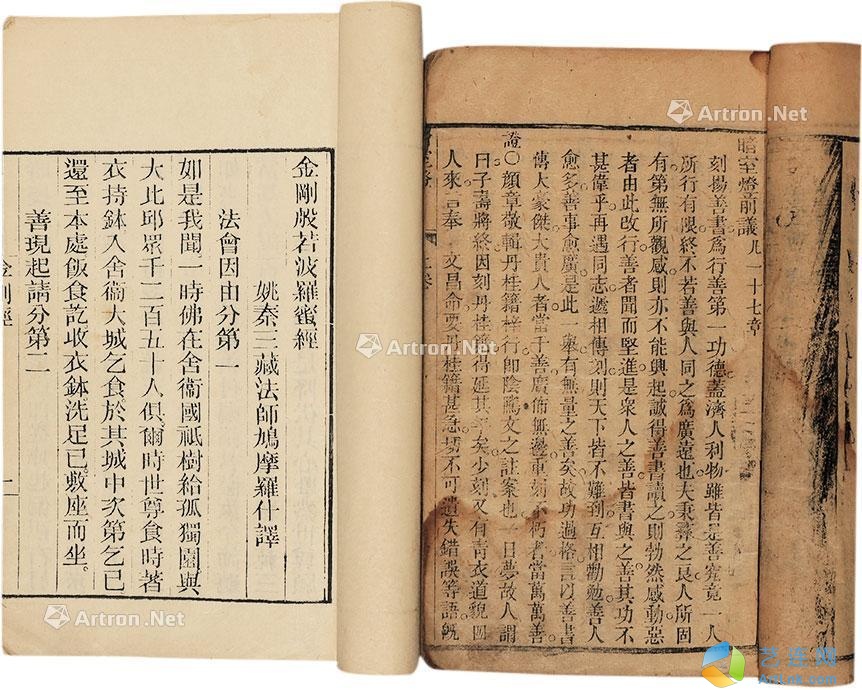 金剛般若波羅蜜經
姚秦三藏法師鳩摩羅什譯
法會因由分第一
如是我聞一時佛在舍衞國祇樹給孤獨園與
大比邱眾千二百五十人俱爾時世尊食時著
衣持鉢入舍衞大城乞食於其城中次第乞已
還至本處飯食訖收衣鉢洗足已敷座而坐。
善現起請分第二
金剛經
暗室燈前議凡一十七章
刻揚善書為行善第一功德蓋濟人利物雖皆是善究竟一人
所行有限終不若善與人同之為廣遠也夫秉彝之良人所固
有第無所觀感則亦不能興起誠得善書讀之則勃然感動惡
者由此改行善者聞而堅進是衆人之善皆書與之善其功不
甚偉乎再遇同志遞相傳刻則天下皆不難到互相勸勉善人
愈多善事愈廣是此一舉有無量之善矣故功過格言以善書
傳大豪傑大貴人者當千善廣佈無邊重刻不朽者當萬萬善
證〇顔章敬輯丹桂籍梓行即陰隲文之註案也一日夢故人謂
曰子壽將終因刻丹桂籍得延其年矣少刻又有青衣道貌
人來言奉文昌命要丹桂籍甚急切不可遺失錯誤等語既
Artron.Net
Artron.Net
Artron.Net
Artron.Net
Artron.Net
Artron.Net
艺连网